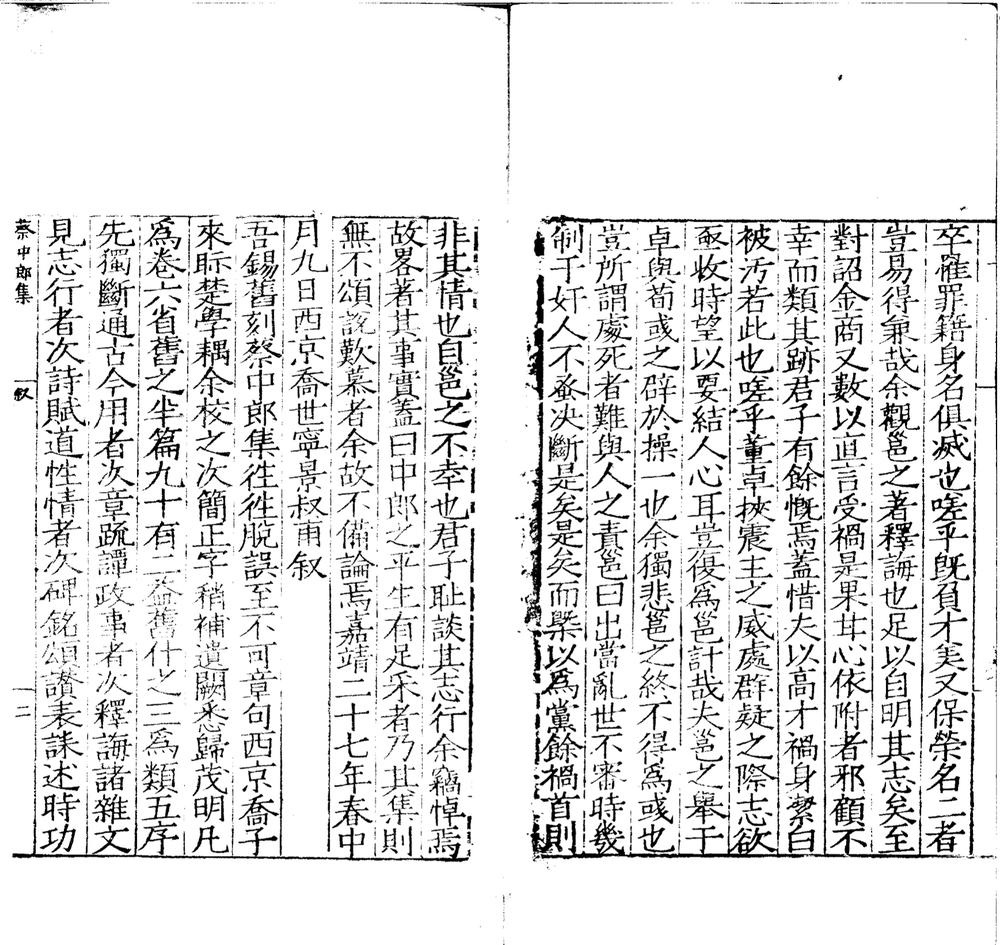 卒罹罪籍身名俱滅也嗟乎旣負才美又保榮名二者
豈易得兼哉余觀邕之著釋誨也足以自明其志矣至
對詔金商又數以直言受禍是果甘心依附者邪顧不
幸而類其跡君子有餘慨焉蓋惜夫以高才禍身絜白
被汚若此也嗟乎董卓挾震主之威處群疑之際志欲
亟收時望以要結人心耳豈復爲邕計哉夫邕之舉于
卓與荀彧之辟於操一也余獨悲邕之終不得爲彧也
豈所謂處死者難與人之責邕曰出當亂世不審時幾
制于奸人不蚤决斷是矣是矣而槩以爲黨餘禍首則
非其情也自邕之不幸也君子耻談其志行余竊悼焉
故畧著其事實蓋曰中郎之平生有足采者乃其集則
無不頌說歎慕者余故不備論焉嘉靖二十七年春中
月九日西京喬世寧景叔甫叙
吾錫舊刻蔡中郎集徃徃脫誤至不可章句西京喬子
來眎楚學耦余校之次簡正字稍補遺闕悉歸茂明凡
爲卷六省舊之半篇九十有二益舊什之三爲類五序
先獨斷通古今用者次章疏譚政事者次釋誨諸雜文
見志行者次詩賦道性情者次碑銘頌讃表誄述時功
蔡中郎集 叙 二